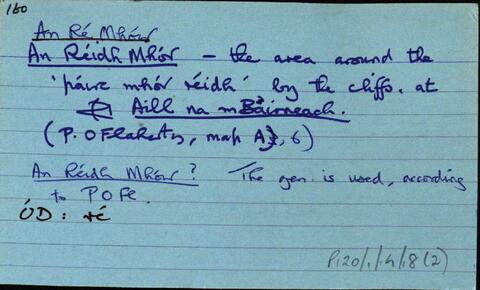 160
An Ré Mhór
An Réidh Mhór – the area around the
'páirc mhór réidh' by the cliffs. at
Aill na mBáirneach.
(P. O Flaherty, map A, 6)
An Réidh Mhór? The gen. is used, according
to P O Fl.
ÓD: ré
P120/1/14/8(2)